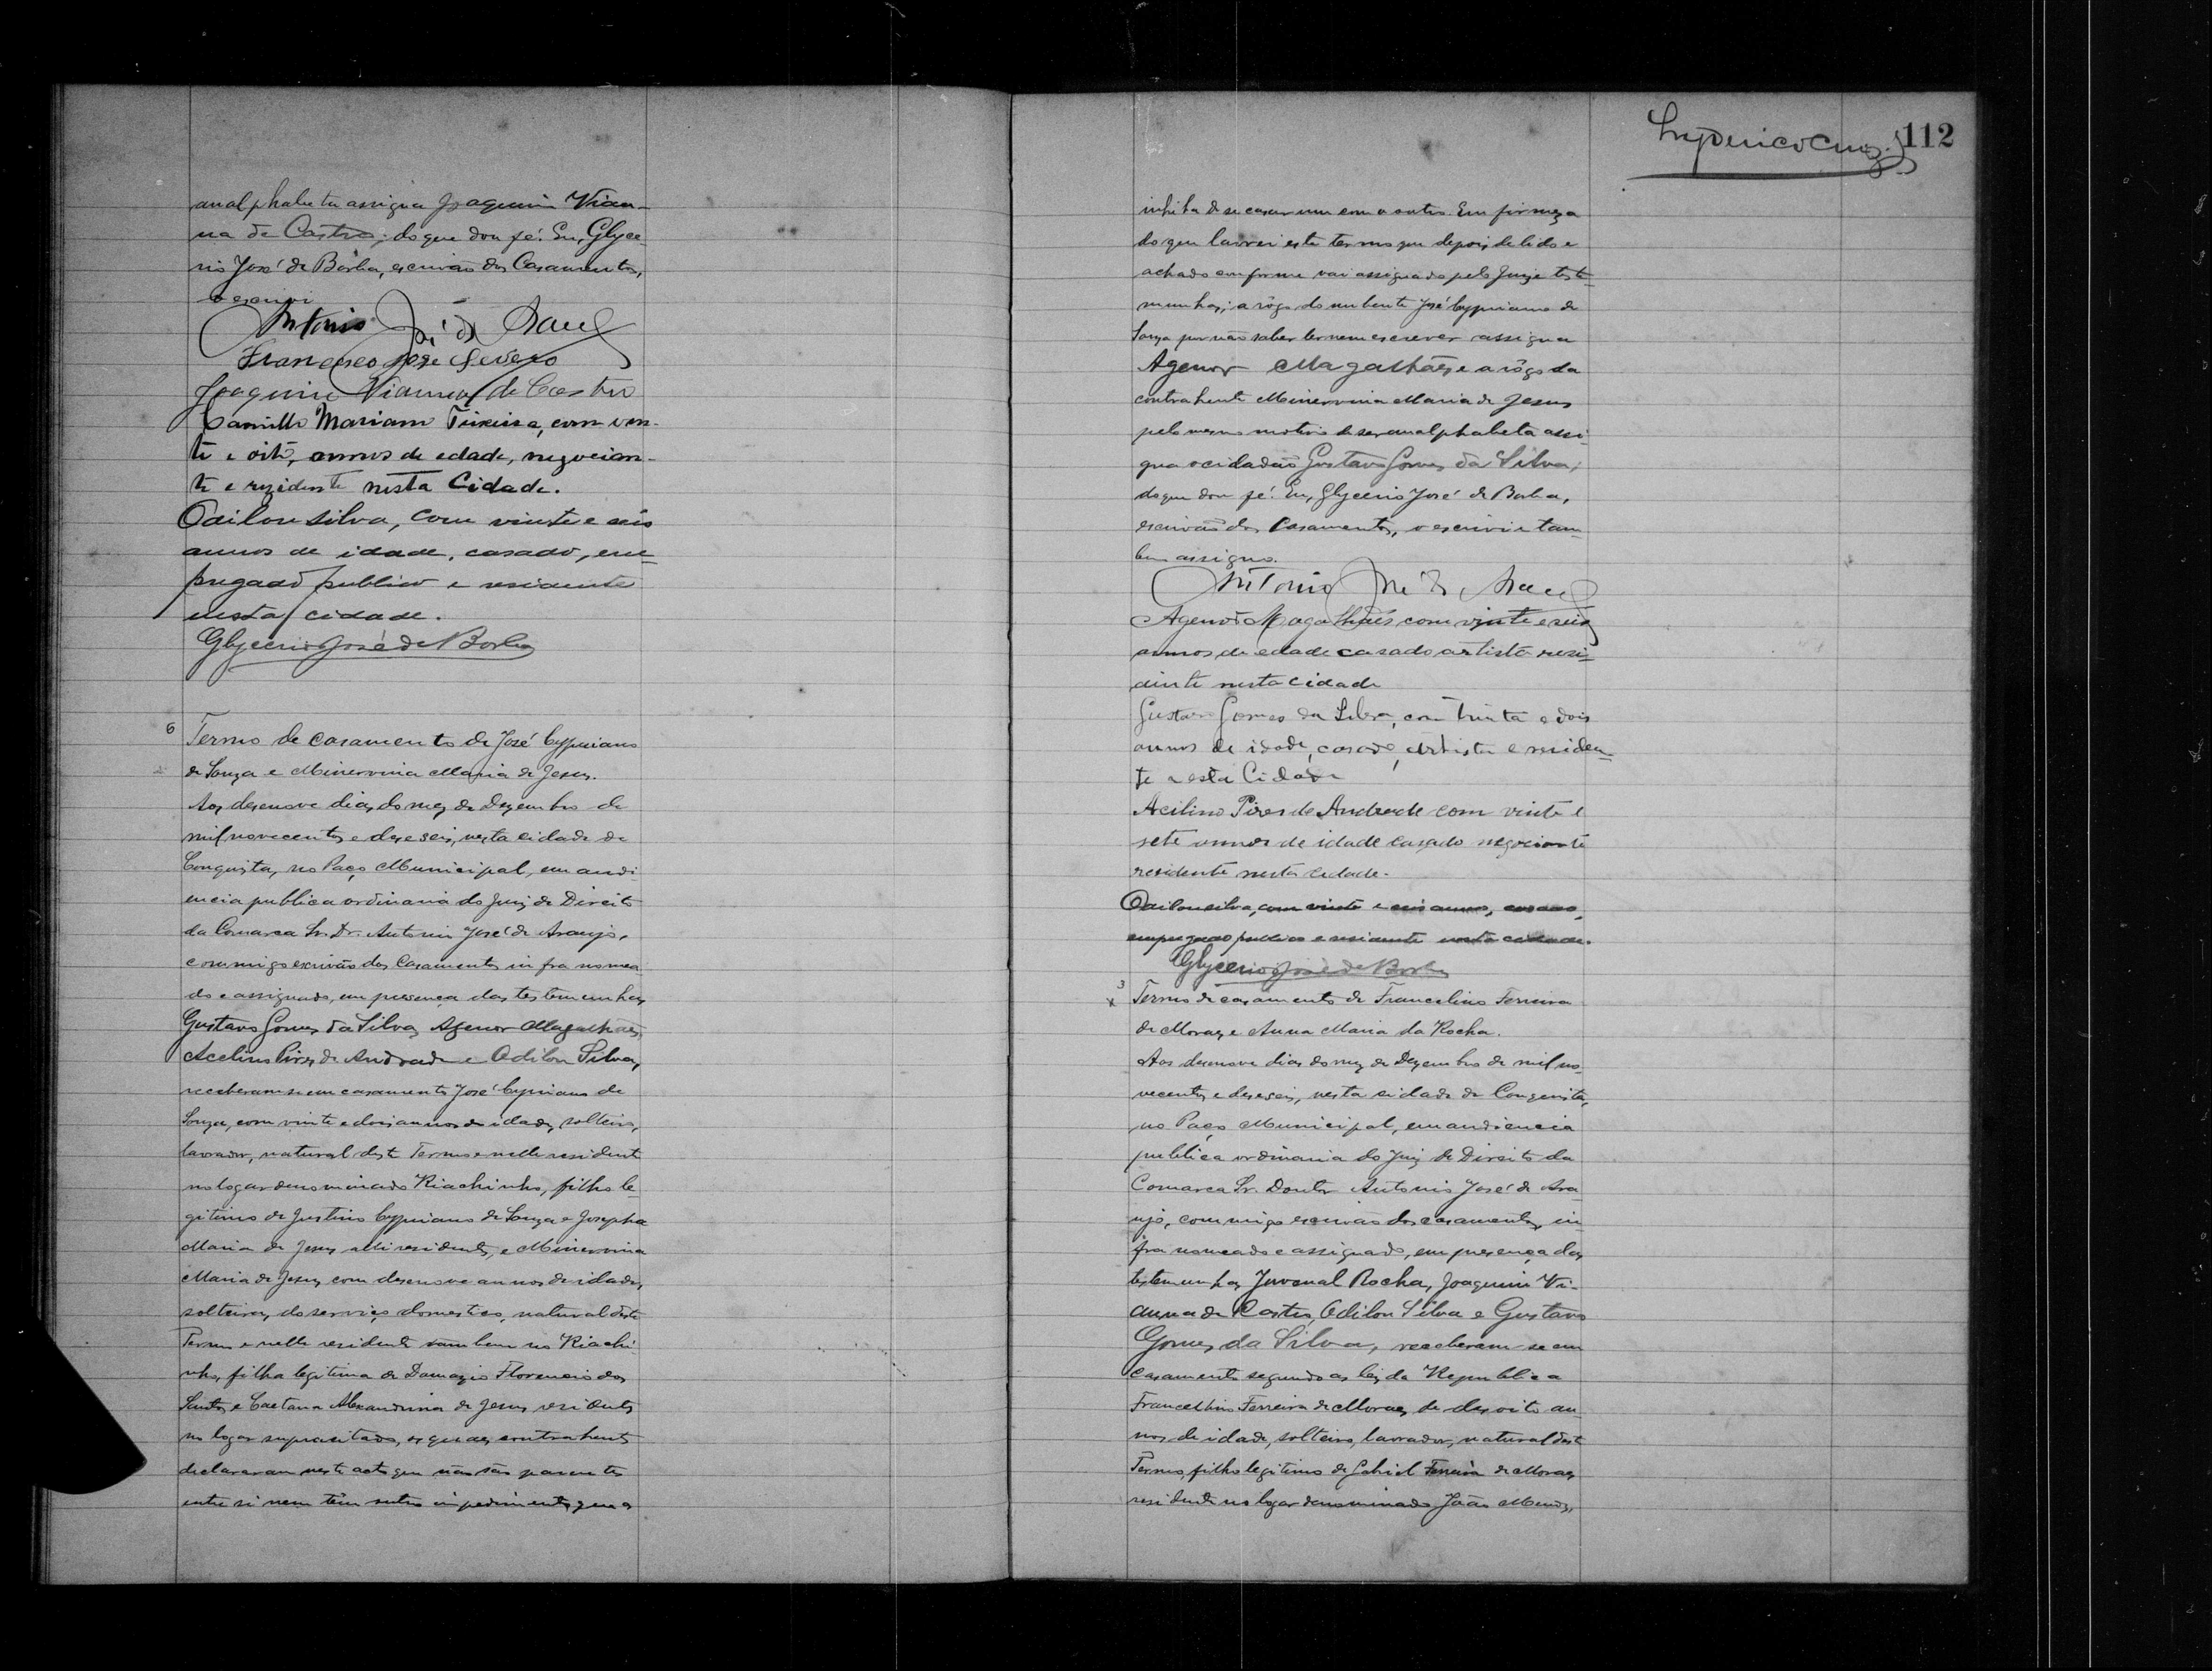 analphabeta assigna Joaquim Vian-
na de Castro; do que dou fé. Eu, Glyce-
rio José de Borba, escrivão dos Casamentos,
o escrivi
Antonio José de Arauj
Francisco José Severo
Joaquim Vianna de Castro
Camillo Mariano Teixeira, com vin-
te e oito, annos de edade, negocian-
te e rezidente nesta Cidade.
Odilon Silva, com vinte e seis
annos de idade, casado, em-
pregado publico e residente
nesta cidade.
Glycerio José de Borba
6 Termo de casamento de José Cypriano
de Souza e Minervina Maria de Jesus.
Aos desenove dias do mez de Dezembro de
mil novecentos e deseseis, nesta cidade de
Conquista, no Paço Municipal, em audi
encia publica ordinaria do Juiz de Direito
da Comarca Sr. Dr. Antonio José de Araujo,
commigo escrivão dos Casamentos infra nomea
do e assignado, em presença das testemunhas
Gustavo Gomes da Silva, Agenor Magalhães,
Acelino Pires de Andrade e Odilon Silva,
receberam-se em casamento José Cypriano de
Souza, com vinte e dois annos de idade, solteiro,
lavrador, natural deste Termo e nelle resident
no logar denominado Riachinho, filho le
gitimo de Justino Cypriano de Souza e Josepha
Maria de Jesus alli residentes, e Minervina
Maria de Jesus com desenove annos de idade,
solteira, do serviço domestico, natural deste
Termo e nelle residente tambem no Riachi
nho, filha legitima de Damazio Florencio dos
Santos e Caetana Alexandrina de Jesus residentes
no logar supracitado, os quaes contrahentes
declararam neste acto que não são parentes
entre si nem têm outro impedimento que os
112
inhiba de se casar um com o outro. Em firmeza
do que lavrei este termo que depois de lido e
achado conforme vai assignado pelo Juiz e teste
munhas; a rôgo do nubente José Cypriano de
Souza por não saber ler nem escrever assigna
Agenor Magalhães e a rôgo da
contrahente Minervina Maria de Jesus
pelo mesmo motivo de ser analphabeta assi
gna o cidadão Gustavo Gomes da Silva;
do que dou fé. Eu, Glycerio José de Borba,
escrivão dos Casamentos, o escrivi e tam
bem assigno.
Antonio José de Arauj
Agenor Magalhães com vinte e seis
annos de edade casado artista resi-
dinte nesta cidade
Gustavo Gomes da Silva, com trinta e dois
annos de idade, casado, artista e residen-
te nesta Cidade
Acilino Pires de Andrade com vinte e
sete annos de idade casado negociante
residente nesta cidade.
Odilon silva, com vinte e seis annos, casado,
empregado publico e residente nesta cidade.
Glycerio José de Borba
3
x Termo de casamento de Francelino Ferreira
de Moraes e Anna Maria da Rocha.
Aos desenove dias do mez de Dezembro de mil no
vecentos e deseseis, nesta cidade de Conquista,
no Paço Municipal, em audiencia
publica ordinaria do Juiz de Direito da
Comarca Sr. Doutor Antonio José de Ara
ujo, commigo escrivão dos casamentos, in
fra nomeado e assignado, em presença das
testemunhas Juvenal Rocha, Joaquim Vi-
anna de Castro, Odilon Silva e Gustavo
Gomes da Silva, receberam-se em
casamento segundo as leis da Republica
Francelino Ferreira de Moraes de desoito an
nos de idade, solteiro, lavrador, natural deste
Termo, filho legitimo de Gabriel Ferreira de Moraes
residente no logar denominado João Mendes,